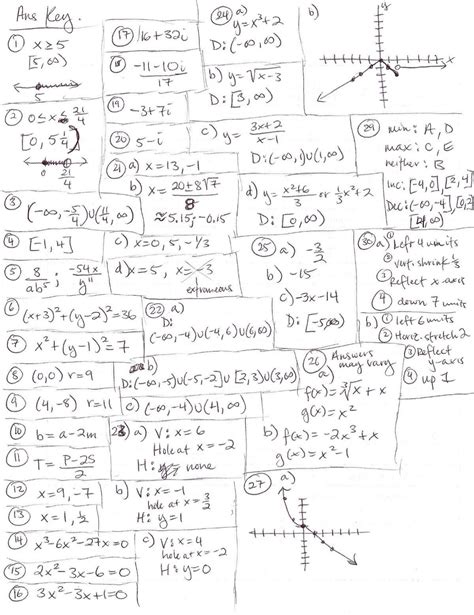 Ans Key.
① x ≥ 5
[5, ∞)
5
② 0 ≤ x ≤ 21/4
[0, 5 1/4]
0 21/4
③ (-∞, -5/4) ∪ (11/4, ∞)
④ [-1, 4]
⑤ 8/ab⁵ ; -54x/y¹¹
⑥ (x+3)² + (y-2)² = 36
⑦ x² + (y-1)² = 7
⑧ (0,0) r = 9
⑨ (4, -8) r = 11
⑩ b = a - 2m
⑪ T = P-2S/2
⑫ x = 9, -7
⑬ x = 1, 1/2
⑭ x³-6x²-27x=0
⑮ 2x²-3x-6=0
⑯ 3x²-3x+1=0
⑰ 16 + 32i
⑱ -11-10i/17
⑲ -3+7i
⑳ 5-i
㉑ a) x = 13, -1
b) x = 20±8√7/8
≈ 5.15, -0.15
c) x = 0, 5, -1/3
d) x = 5, x = -3
extraneous
㉒ a)
D:
(-∞,-4)∪(-4,6)∪(6,∞)
b)
D: (-∞,-5)∪(-5,-2]∪[3,3)∪(3,∞)
c) (-∞,-4)∪(4,∞)
㉓ a) V: x = 6
Hole at x = -2
H: none
b) V: x = -1
hole at x = 3/2
H: y = 1
c) V: x = 4
hole at x = -2
H: y = 0
㉔ a)
y = x³+2
D: (-∞, ∞)
b) y = √x-3
D: [3, ∞)
c) y = 3x+2/x-1
D: (-∞,1)∪(1,∞)
d) y = x²+6/3 or 1/3x²+2
D: [0, ∞)
㉕ a) -3/2
b) -15
c) -3x-14
D: [-5,∞)
㉖ Answers
may vary
a)
f(x) = ∛x + x
g(x) = x²
b) f(x) = -2x³+x
g(x) = x²-1
㉗ a)
b)
y
x
㉙ min: A, D
max: C, E
neither: B
inc: [-4,0], [2,4]
Dec: (-∞,-4], [0,2]
[4,∞)
㉚ a) ① Left 4 units
② vert. shrink 1/3
③ Reflect x-axis
④ down 7 units
b) ① left 6 units
② Horiz. stretch 2
③ Reflect
y-axis
④ up 1